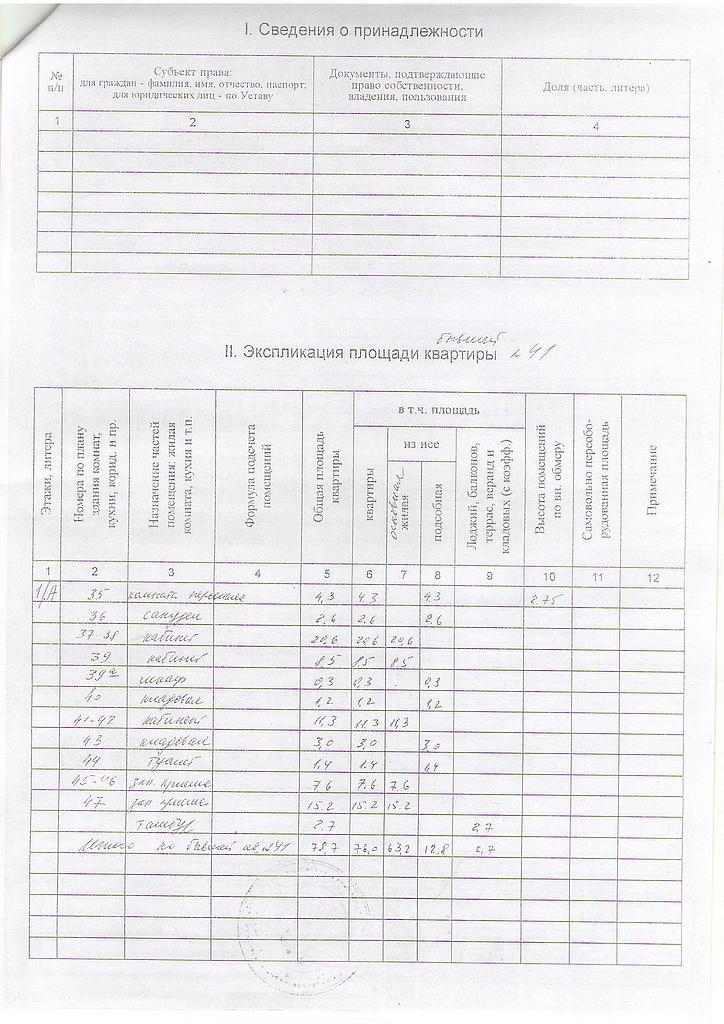 I. Сведения о принадлежности
№ п/п
Субъект права:
для граждан - фамилия, имя, отчество, паспорт;
для юридических лиц - по Уставу
Документы, подтверждающие
право собственности,
владения, пользования
Доля (часть, литера)
1 2 3 4
бывшей
II. Экспликация площади квартиры №41
Этажи, литера
Номера по плану
здания комнат,
кухни, корид. и пр.
Назначение частей
помещения: жилая
комната, кухня и т.п.
Формула подсчета
помещений
Общая площадь
квартиры
в т.ч. площадь
квартиры
из нее
основная
жилая
подсобная
Лоджий, балконов,
террас, веранд и
кладовых (с коэфф.)
Высота помещений
по вн. обмеру
Самовольно переобо-
рудованная площадь
Примечание
1 2 3 4 5 6 7 8 9 10 11 12
1/А 35 комната персонала 4,3 4.3 4.3 2.75
36 санузел 2,6 2.6 2.6
37-38 кабинет 20,6 20,6 20,6
39 кабинет 8.5 8.5 8.5
39а шкаф 0,3 0,3 0,3
40 кладовая 1,2 1,2 1,2
41-42 кабинет 11,3 11.3 11,3
43 кладовая 3,0 3,0 3,0
44 туалет 1,4 1.4 1,4
45-46 зал приема 7.6 7.6 7.6
47 зал приема 15.2 15.2 15.2
тамбур 2.7 2,7
Итого по бывшей кв. №41 78,7 76,0 63,2 12.8 2,7